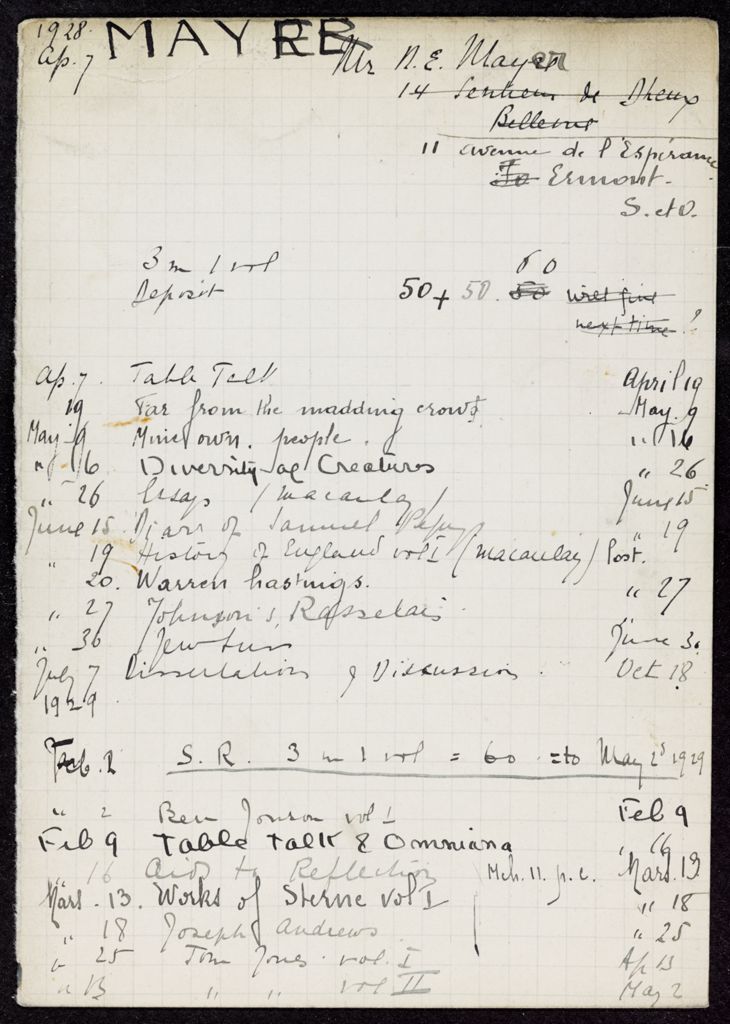 1928
Ap. 7 MAYRE
Mr N. E. Mayer
14 Sentier de
Bellevue
11 avenue de l'Espérance
Ermont.
S. et O.
3 m 1 vol 60
Deposit 50 + 50. 50 will give
next time ?
Ap. 7. Table Talk April 19
19 Far from the madding crowd May 9
May 9 Mine own people. " 16
" 16 Diversity of Creatures " 26
" 26 Essays (macaulay) June 15
June 15 Diary of Samuel Pepys " 19
" 19 History of England vol I (Macaulay) Post.
20. Warren hastings. " 27
" 27 Johnson's Rasselais
" 30 Jew June 30
July 7 Dissertations & Discussions Oct 18
1929
Feb. 2 S. R. 3 m 1 vol = 60 = to May 2d 1929
" 2 Ben Jonson vol I Feb 9
Feb 9 Table Talk & Omniana " 16
" 16 Aids to Reflection Mch. 11. p.c. Mars. 13
Mars. 13. Works of Sterne vol I " 18
" 18 Joseph Andrews " 25
" 25 Tom Jones vol. I Ap 13
" 13 " " vol II May 2